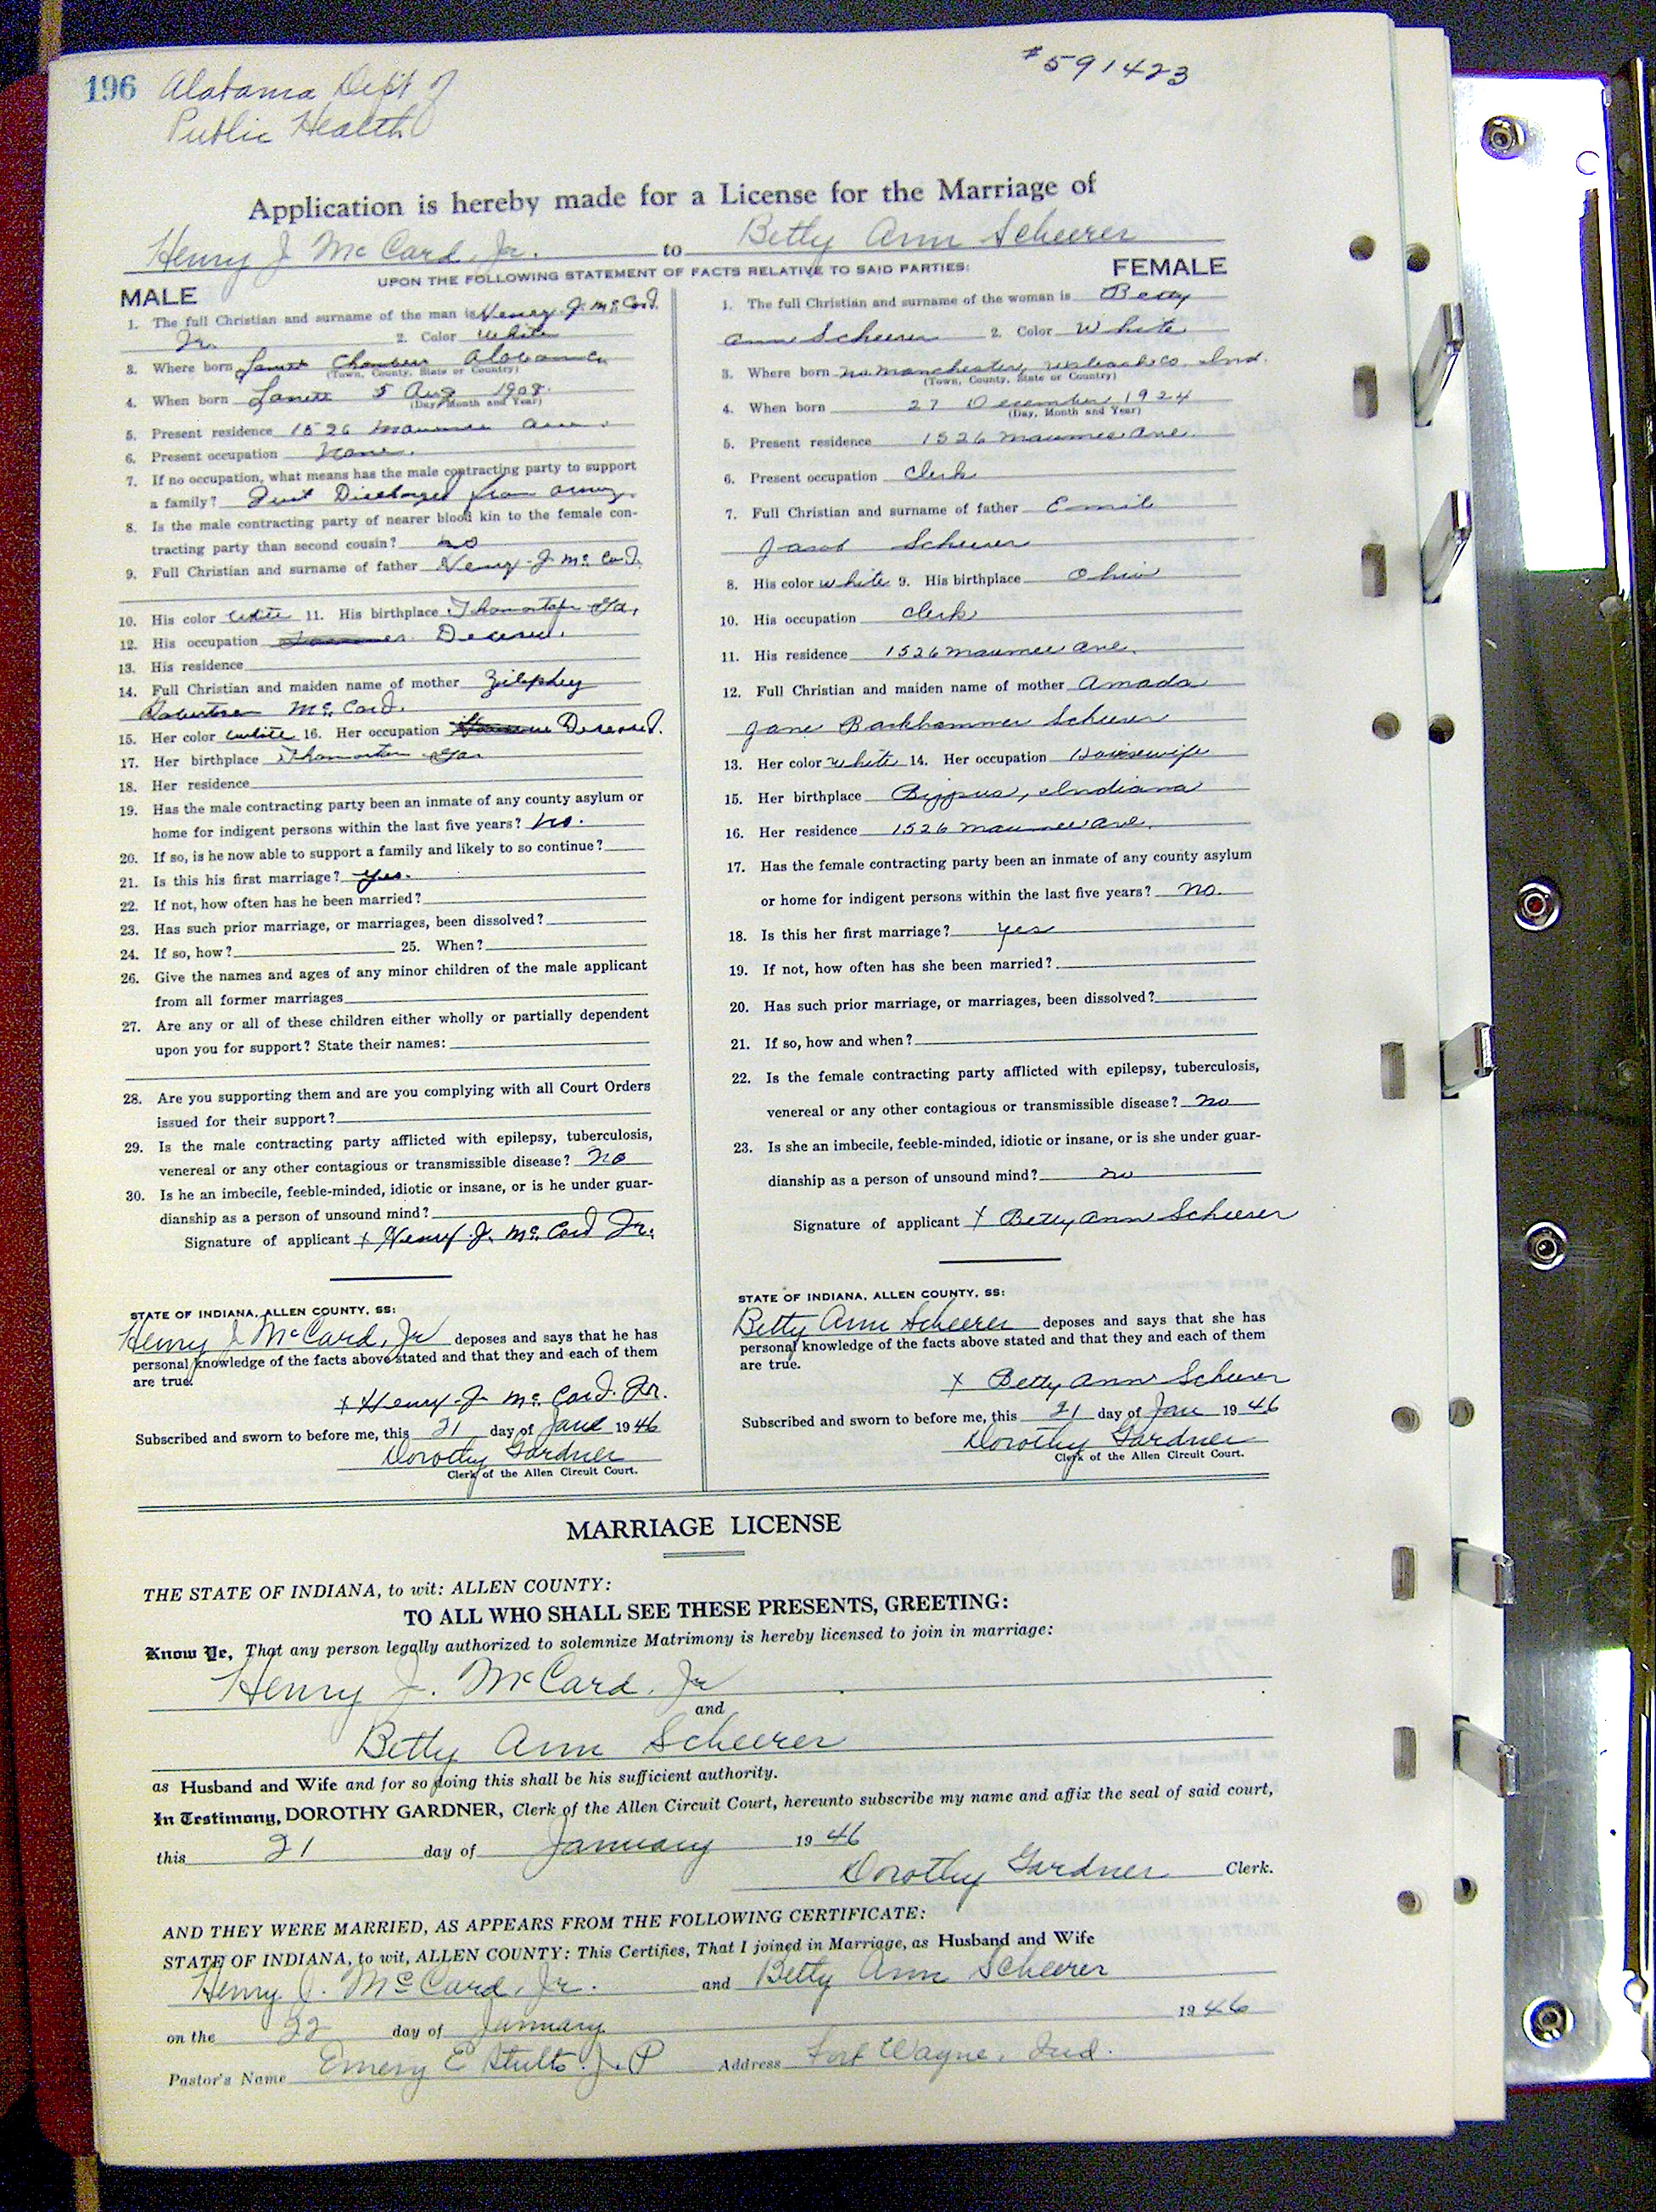 196 Alabama Dept of
Public Health
#591423
Application is hereby made for a License for the Marriage of
Henry J McCard, Jr. to Betty Ann Scheerer
UPON THE FOLLOWING STATEMENT OF FACTS RELATIVE TO SAID PARTIES:
MALE
1. The full Christian and surname of the man is Henry J. McCard.
Jr. 2. Color White
3. Where born Lanett Chambers Alabama
(Town, County, State or Country)
4. When born Lanett 5 Aug 1908.
(Day, Month and Year)
5. Present residence 1526 Maumee Ave.
6. Present occupation None.
7. If no occupation, what means has the male contracting party to support
a family? Just Discharged from army.
8. Is the male contracting party of nearer blood kin to the female con-
tracting party than second cousin? no
9. Full Christian and surname of father Henry J. McCard.
10. His color White 11. His birthplace Ga.
12. His occupation Deceased.
13. His residence
14. Full Christian and maiden name of mother Zilphey
Robertson McCard.
15. Her color White 16. Her occupation Deceased.
17. Her birthplace Ga.
18. Her residence
19. Has the male contracting party been an inmate of any county asylum or
home for indigent persons within the last five years? No.
20. If so, is he now able to support a family and likely to so continue?
21. Is this his first marriage? Yes.
22. If not, how often has he been married?
23. Has such prior marriage, or marriages, been dissolved?
24. If so, how? 25. When?
26. Give the names and ages of any minor children of the male applicant
from all former marriages
27. Are any or all of these children either wholly or partially dependent
upon you for support? State their names:
28. Are you supporting them and are you complying with all Court Orders
issued for their support?
29. Is the male contracting party afflicted with epilepsy, tuberculosis,
venereal or any other contagious or transmissible disease? No
30. Is he an imbecile, feeble-minded, idiotic or insane, or is he under guar-
dianship as a person of unsound mind?
Signature of applicant x Henry J. McCard Jr.
STATE OF INDIANA, ALLEN COUNTY, SS:
Henry J McCard, Jr deposes and says that he has
personal knowledge of the facts above stated and that they and each of them
are true.
x Henry J. McCard. Jr.
Subscribed and sworn to before me, this 21 day of Jan 1946
Dorothy Gardner
Clerk of the Allen Circuit Court.
FEMALE
1. The full Christian and surname of the woman is Betty
Ann Scheerer 2. Color White
3. Where born No. Manchester, Wabash Co. Ind.
(Town, County, State or Country)
4. When born 27 December 1924
(Day, Month and Year)
5. Present residence 1526 Maumee Ave.
6. Present occupation Clerk
7. Full Christian and surname of father Emil
Jacob Scheerer
8. His color White 9. His birthplace Ohio
10. His occupation Clerk
11. His residence 1526 Maumee Ave.
12. Full Christian and maiden name of mother Amada
Jane Barkhammer Scheerer
13. Her color White 14. Her occupation Housewife
15. Her birthplace Bippus, Indiana
16. Her residence 1526 Maumee Ave.
17. Has the female contracting party been an inmate of any county asylum
or home for indigent persons within the last five years? No.
18. Is this her first marriage? Yes
19. If not, how often has she been married?
20. Has such prior marriage, or marriages, been dissolved?
21. If so, how and when?
22. Is the female contracting party afflicted with epilepsy, tuberculosis,
venereal or any other contagious or transmissible disease? No
23. Is she an imbecile, feeble-minded, idiotic or insane, or is she under guar-
dianship as a person of unsound mind? No
Signature of applicant x Betty Ann Scheerer
STATE OF INDIANA, ALLEN COUNTY, SS:
Betty Ann Scheerer deposes and says that she has
personal knowledge of the facts above stated and that they and each of them
are true.
x Betty Ann Scheerer
Subscribed and sworn to before me, this 21 day of Jan 1946
Dorothy Gardner
Clerk of the Allen Circuit Court.
MARRIAGE LICENSE
THE STATE OF INDIANA, to wit: ALLEN COUNTY:
TO ALL WHO SHALL SEE THESE PRESENTS, GREETING:
Know Ye, That any person legally authorized to solemnize Matrimony is hereby licensed to join in marriage:
Henry J. McCard, Jr
and
Betty Ann Scheerer
as Husband and Wife and for so doing this shall be his sufficient authority.
In Testimony, DOROTHY GARDNER, Clerk of the Allen Circuit Court, hereunto subscribe my name and affix the seal of said court,
this 21 day of January 1946
Dorothy Gardner Clerk.
AND THEY WERE MARRIED, AS APPEARS FROM THE FOLLOWING CERTIFICATE:
STATE OF INDIANA, to wit, ALLEN COUNTY: This Certifies, That I joined in Marriage, as Husband and Wife
Henry J. McCard, Jr. and Betty Ann Scheerer
on the 22 day of January 1946
Pastor's Name Emery E Stults. J. P Address Fort Wayne, Ind.